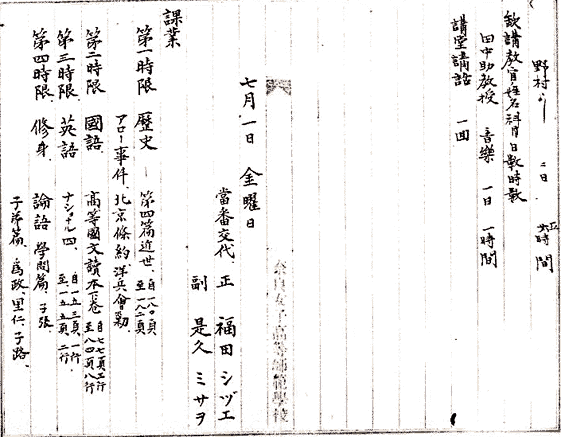 野村
二日
時間
欽講教官姓名科目日數時數
田中助教授 音樂 一日 一時間
講堂講話 一回
奈良女子高等師範學校
七月一日 金曜日
當番交代 正 福田シヅエ
副 是久ミサヲ
課業
第一時限 歷史 第四篇近世、自一八〇頁至一八二頁
アロー事件、北京條約、洋兵會勦、
第二時限 國語、高等國文讀本下卷 自七七頁工行至八四頁八行
第三時限、英語 ナショナル四、自一五三頁一行至一五五頁二行、
第四時限、修身、論語 學問篇、子張、
子游篇、爲政、里仁、子路、